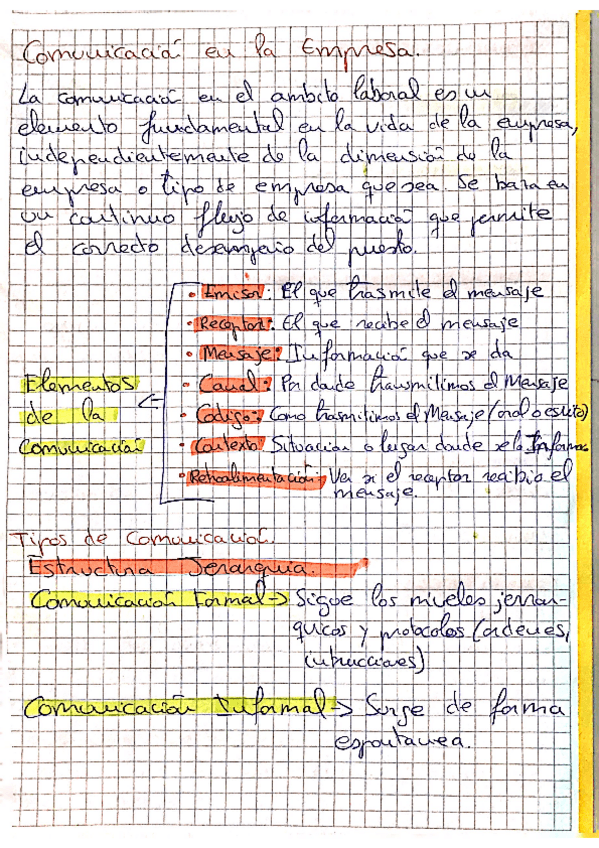 Comunicación en la Empresa.
La comunicación en el ambito laboral es un
elemento fundamental en la vida de la empresa,
independientemente de la dimensión de la
empresa o tipo de empresa que sea. Se basa en
un continuo flujo de información que permite
el correcto desempeño del puesto.
• Emisor: El que trasmite el mensaje
• Receptor: El que recibe el mensaje
• Mensaje: Información que se da
Elementos
de la
Comunicación
• Canal: Por donde transmitimos el Mensaje
• Codigo: Como trasmitimos el Mensaje (oral o escrito)
• Contexto: Situación o lugar donde se lo Informas
• Retroalimentación: Ver si el receptor recibio el
mensaje.
Tipos de Comunicación.
Estructura Jerarquia.
Comunicación Formal -> Sigue los niveles jerrar-
quicos y protocolos (ordenes,
intrucciones)
Comunicación Informal -> Surge de forma
espontanea.